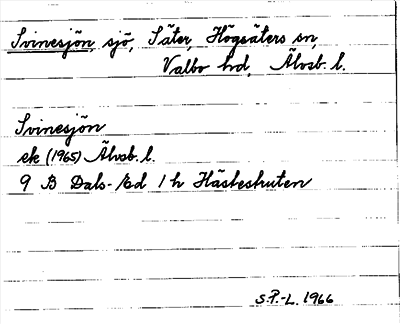 Svinesjön, sjö, Säter, Högsäters sn,
Valbo hd, Älvsb. l.
Svinesjön
ek (1965) Älvsb. l.
9 B Dals-Ed 1 h Hästeshuten
S.P.-L. 1966